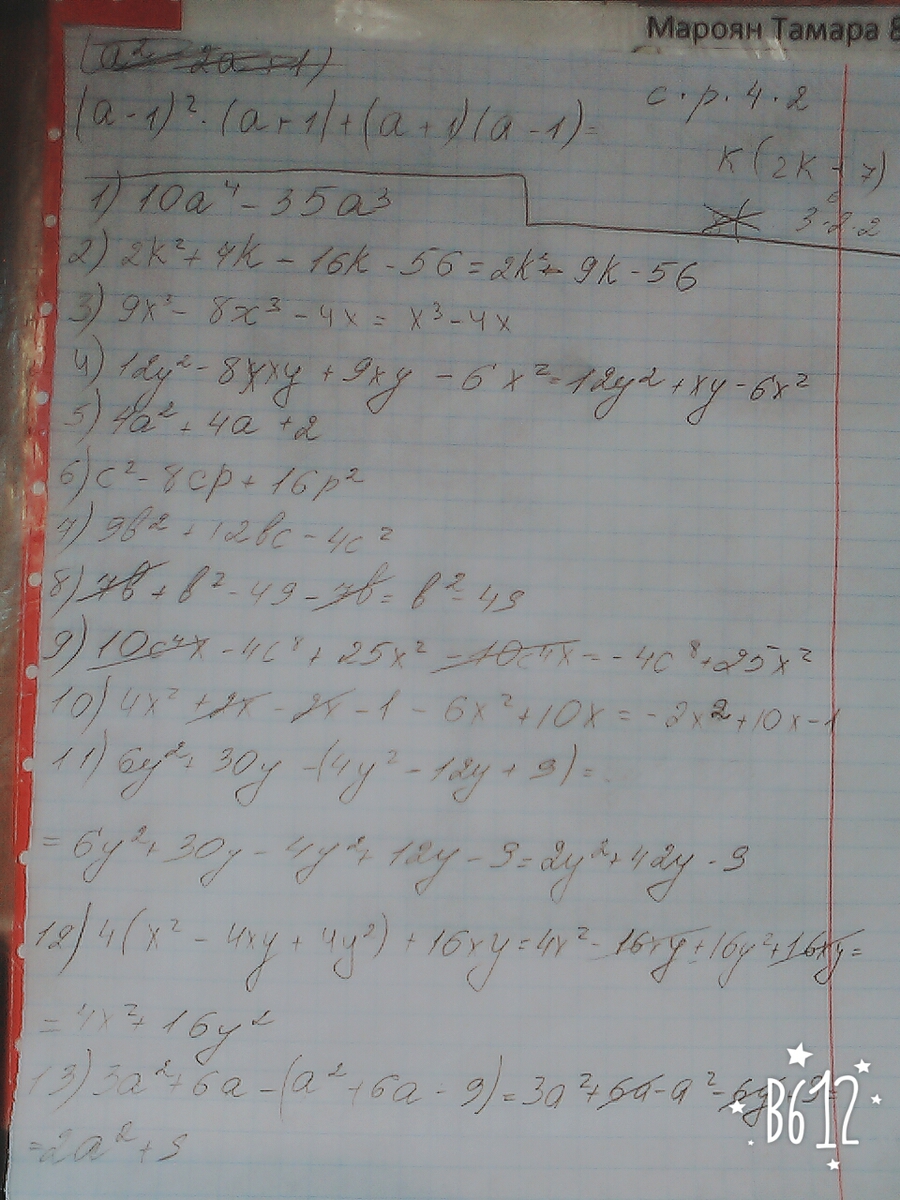 Мароян Тамара 8
(a² - 2a + 1)
с.р.4.2
(a - 1)² · (a + 1) + (a + 1)(a - 1) =
к(2к + 7)
3·2·2
1) 10a⁴ - 35a³
2) 2к² + 7к - 16к - 56 = 2к² - 9к - 56
3) 9x³ - 8x³ - 4x = x³ - 4x
4) 12y² - 8xy + 9xy - 6x² = 12y² + xy - 6x²
5) 4a² + 4a + 2
6) c² - 8cp + 16p²
7) 9b² + 12bc - 4c²
8) 7b + b² - 49 - 7b = b² - 49
9) 10c⁴x - 4c⁸ + 25x² - 10c⁴x = -4c⁸ + 25x²
10) 4x² + 2x - 2x - 1 - 6x² + 10x = -2x² + 10x - 1
11) 6y² + 30y - (4y² - 12y + 9) =
= 6y² + 30y - 4y² + 12y - 9 = 2y² + 42y - 9
12) 4(x² - 4xy + 4y²) + 16xy = 4x² - 16xy + 16y² + 16xy =
= 4x² + 16y²
13) 3a² + 6a - (a² + 6a - 9) = 3a² + 6a - a² - 6a + 9 =
= 2a² + 9
B612